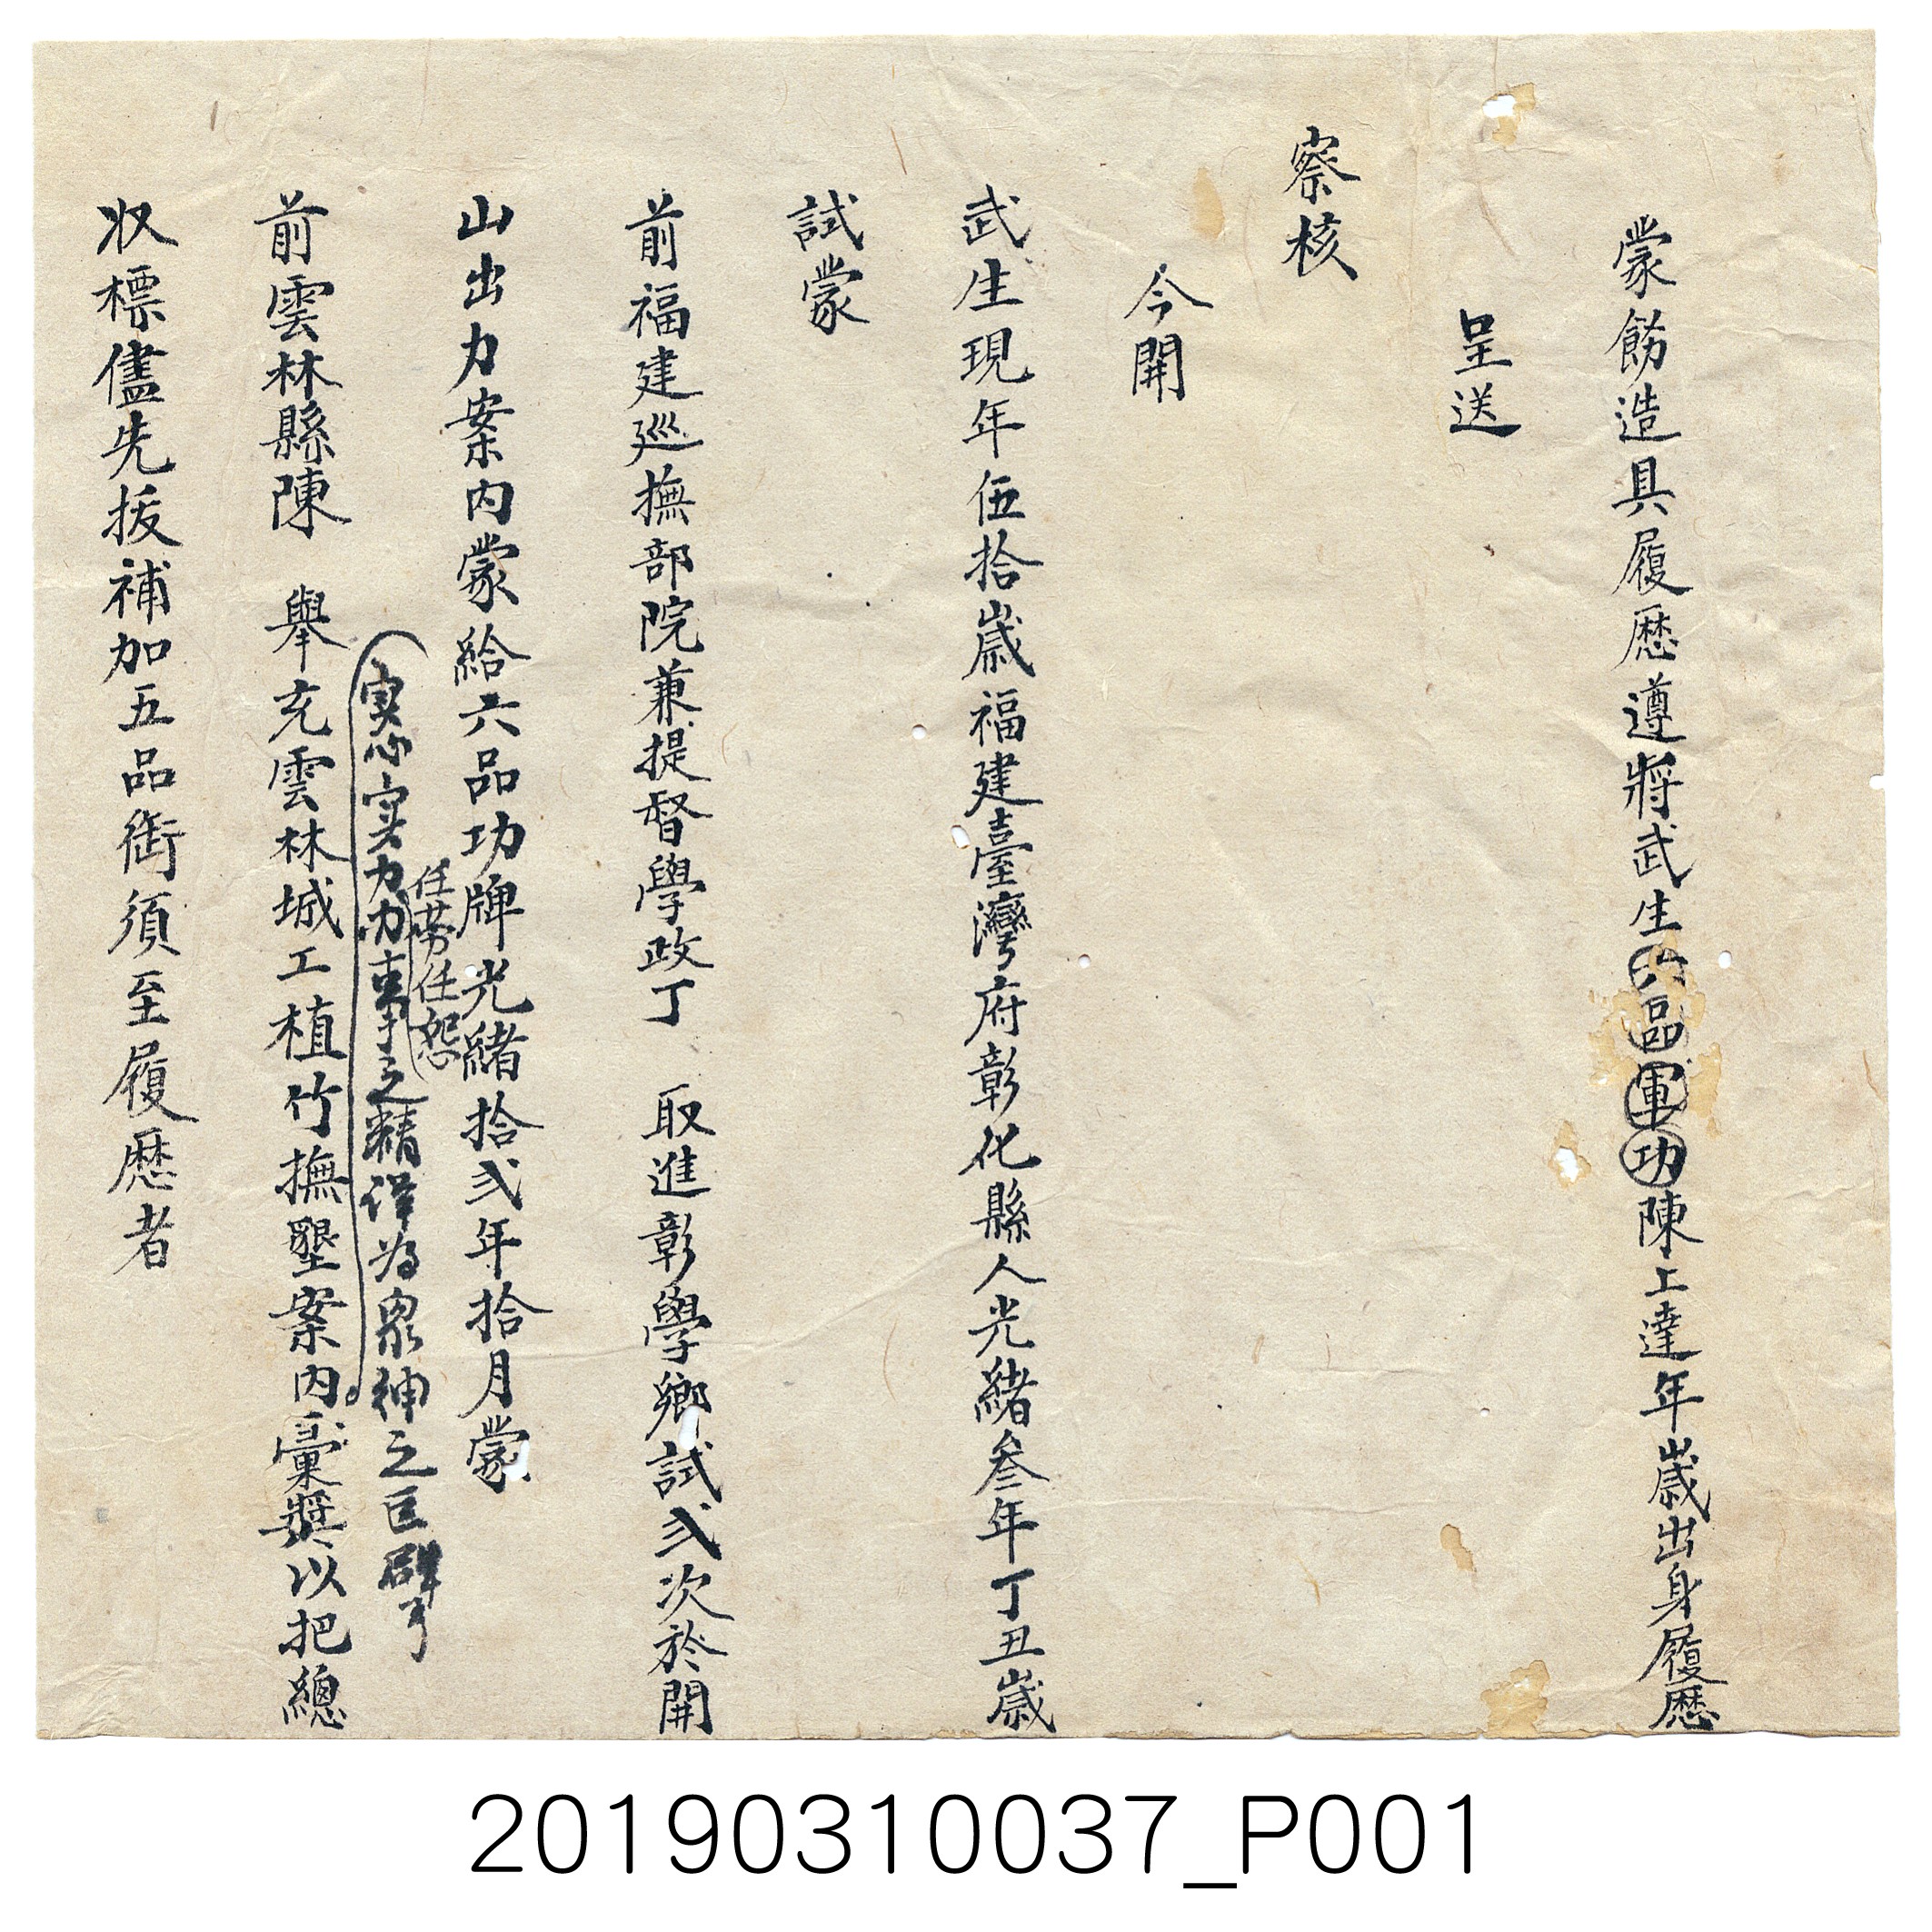 蒙飭造具履歷遵將武生六品軍功陳上達年歲出身履歷
呈送
察核
今開
武生現年伍拾歲福建臺灣府彰化縣人光緒叁年丁丑歲
試蒙
前福建巡撫部院兼提督學政丁　取進彰學鄉試弍次於開
山出力案內蒙給六品功牌光緒拾弍年拾月蒙
任勞任怨
実心実力力事之精詳為眾紳之巨擘
前雲林縣陳　舉充雲林城工植竹撫墾案內彙獎以把總
收標儘先拔補加五品銜須至履歷者
20190310037_P001